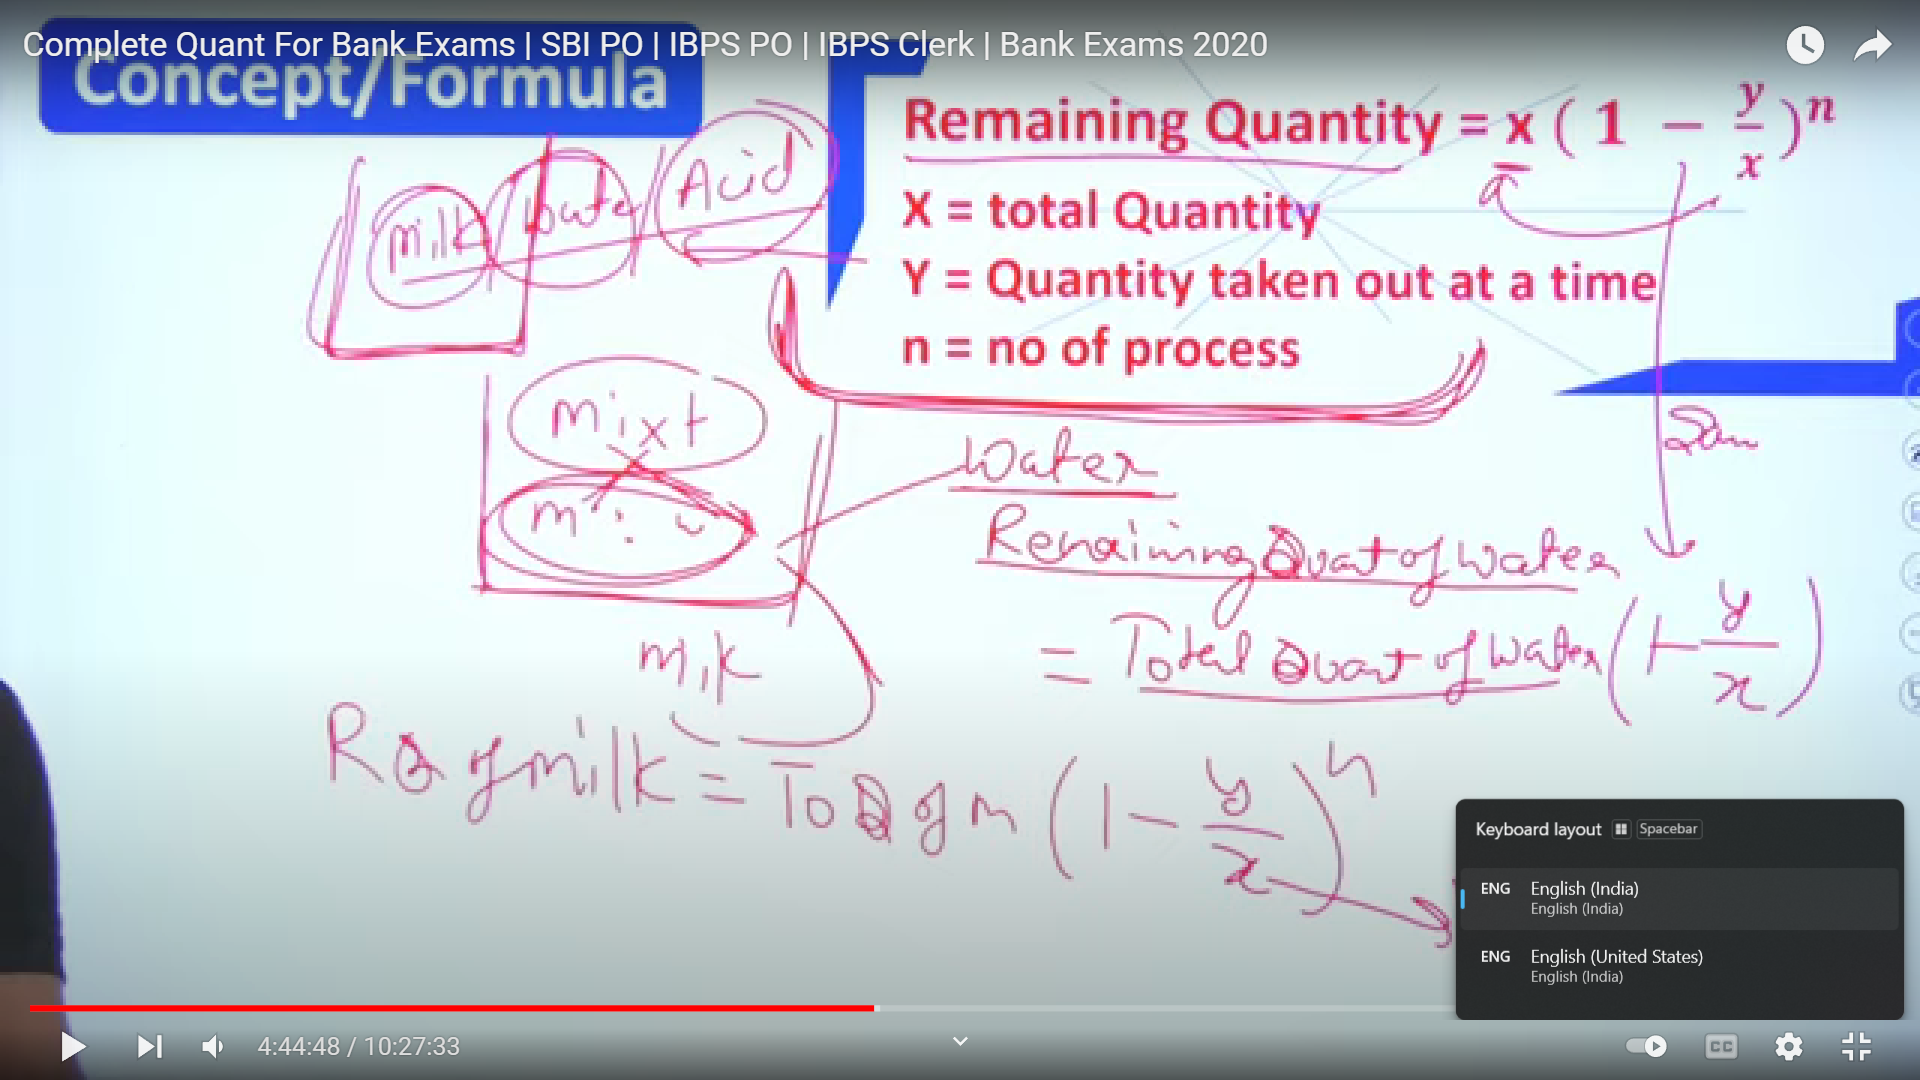 Complete Quant For Bank Exams | SBI PO | IBPS PO | IBPS Clerk | Bank Exams 2020
Concept/Formula
Remaining Quantity = x ( 1 − y/x )^n
X = total Quantity
Y = Quantity taken out at a time
n = no of process
Milk / Wate / Acid
Mixt
m : w
Water
Remaining Quant of Water
= Total Quant of Water (1 - y/x)
Milk
RQ of milk = To Q of m (1 - y/x)^n
Keyboard layout Spacebar
ENG English (India)
English (India)
ENG English (United States)
English (India)
4:44:48 / 10:27:33
CC